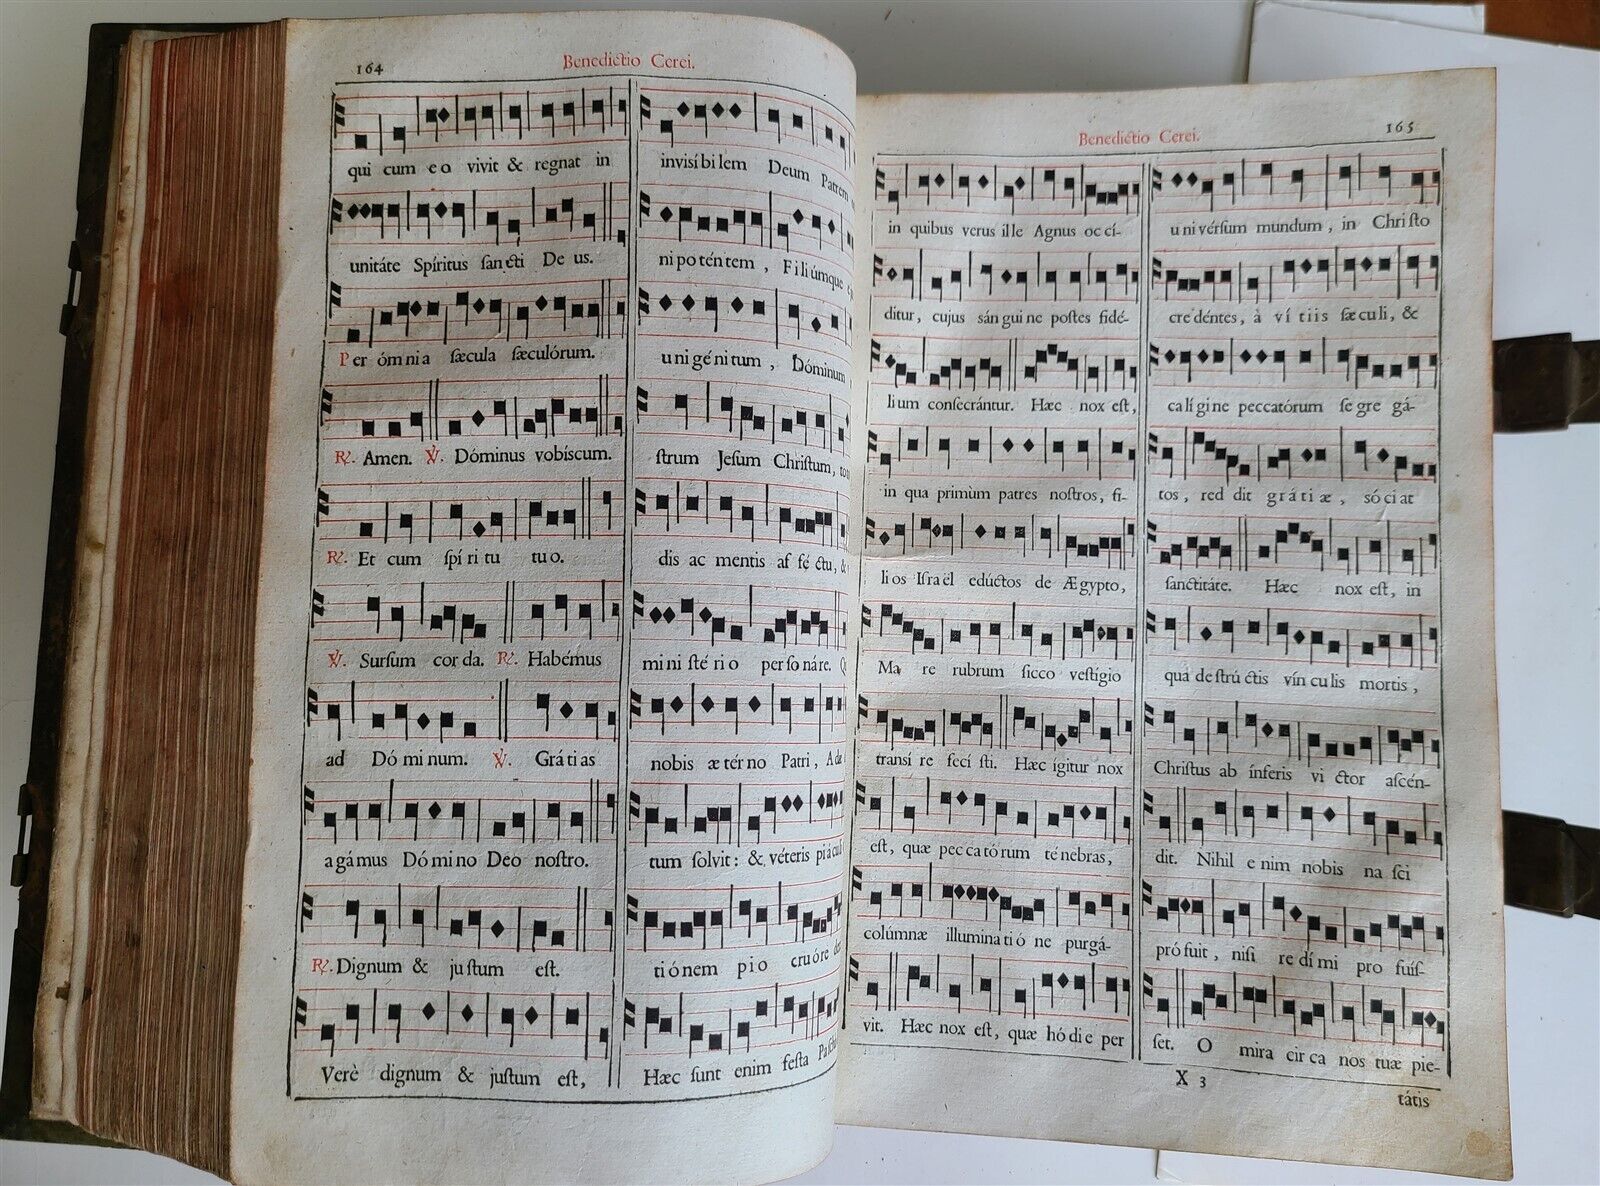 164
Benedictio Cerei.
qui cum eo vivit & regnat in
unitáte Spíritus ſancti De us.
Per ómnia ſæcula ſæculórum.
℟. Amen. ℣. Dóminus vobíscum.
℟. Et cum ſpí ri tu tu o.
℣. Surſum cor da. ℟. Habémus
ad Dó mi num. ℣. Grá ti as
a gá mus Dó mi no Deo noſtro.
℟. Dignum & ju ſtum eſt.
Verè dignum & juſtum eſt,
invisí bi lem Deum Patrem
ni po tén tem, F i li úmque
u ni gé ni tum, Dóminum
ſtrum Jeſum Chriſtum,
dis ac mentis af fé ctu, &
mi ni ſté ri o per ſo ná re.
nobis æ tér no Patri, Adæ
tum ſolvit: & véteris
ti ó nem pi o cru ó re
Hæc ſunt enim feſta
Benedictio Cerei.
165
in quibus verus il le Agnus oc cí-
ditur, cujus sán gui ne poſtes fidé-
li um conſecrántur. Hæc nox eſt,
in qua primùm patres noſtros, fi-
li os Iſra ël edúctos de Ægypto,
Ma re rubrum ſicco veſtígio
transí re fecí ſti. Hæc ígitur nox
eſt, quæ pec ca tó rum té nebras,
colúmnæ illumina ti ó ne purgá-
vit. Hæc nox eſt, quæ hó di e per
u ni vérſum mundum, in Chri ſto
cre déntes, à ví tiis ſæ cu li, &
ca lí gi ne peccatórum ſe gre gá-
tos, red dit grá ti æ, só ci at
ſanctitáte. Hæc nox eſt, in
quá de ſtrú ctis vín cu lis mortis,
Chriſtus ab ínferis vi ctor aſcén-
dit. Nihil e nim nobis na ſci
pró fuit, niſi re dí mi pro fuíſ-
ſet. O mira cir ca nos tuæ pie-
X 3
tátis